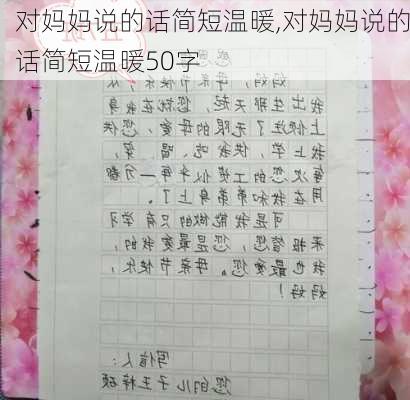 对妈妈说的话简短温暖,对妈妈说的
话简短温暖50字
妈妈,母亲节快乐,从
我出生那天起,您就在我身
上倾注了无限的母爱,您供
我上学,供我吃、喝、穿,
每次您的工资似乎每一分都
用在我和弟弟身上了。
可是我能做的只有学习
来报答您,您是最爱我的,
我也最爱您。母亲节快乐
妈妈!
写信人:
您的儿子王梓硕